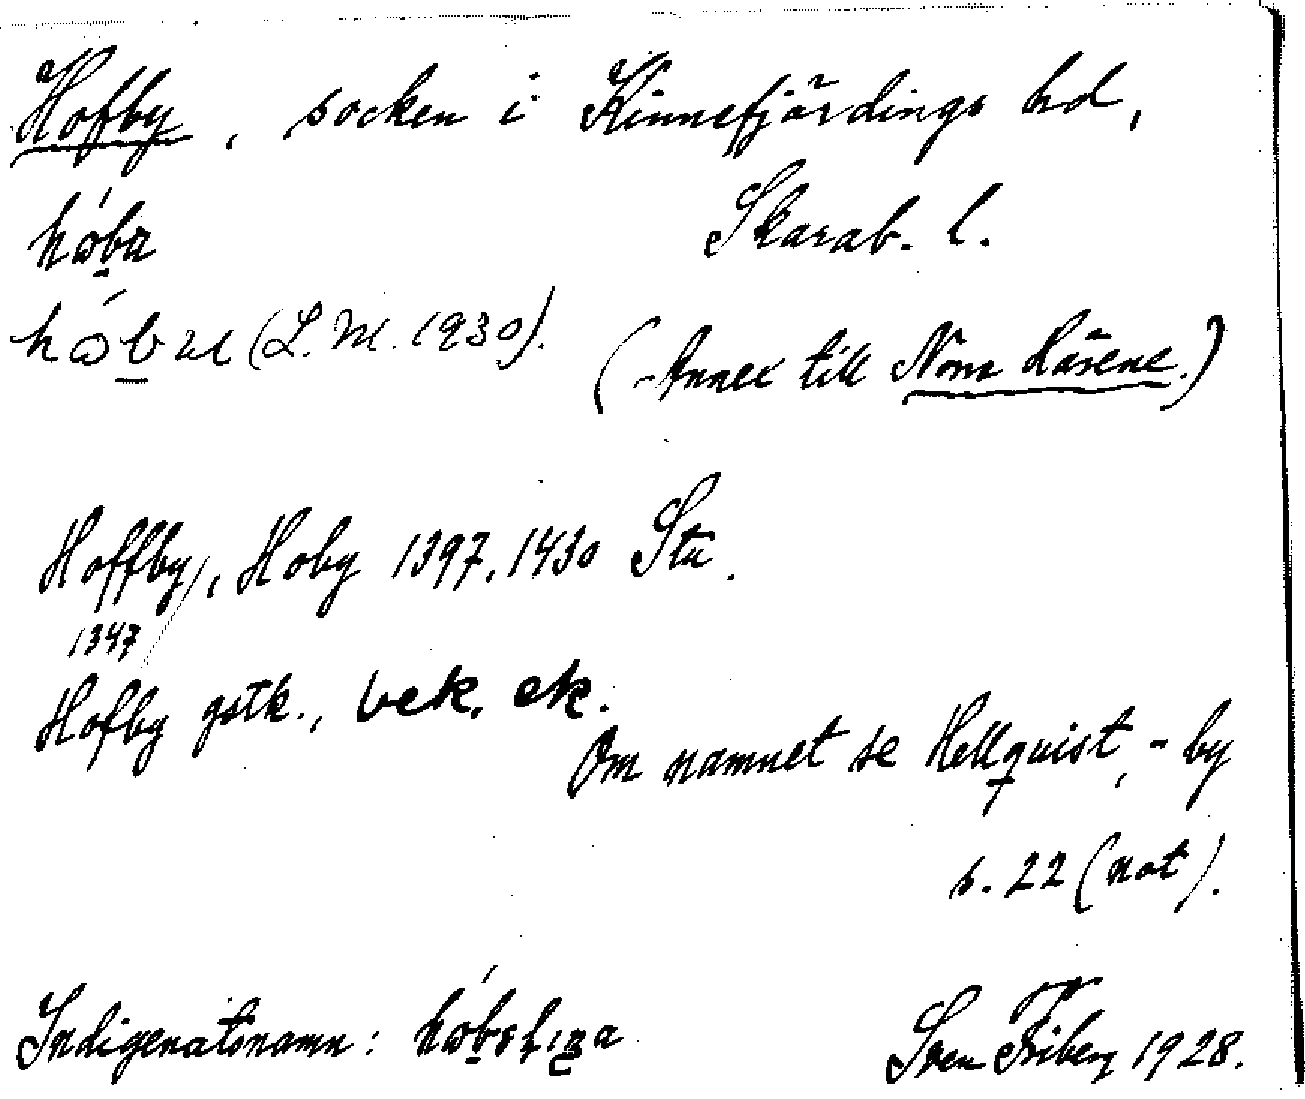 Hofby, socken i Kinnefjärdings hd,
Skarab. l.
(L. M. 1930).
(Annex till Norra Härene.)
Hoffby, Hoby 1397, 1430 Stu.
1347
Hofby gstk., bek. ek.
Om namnet se Hellquist, -by
s. 22 (not).
Indigenatsnamn:
Sven Friberg 1928.